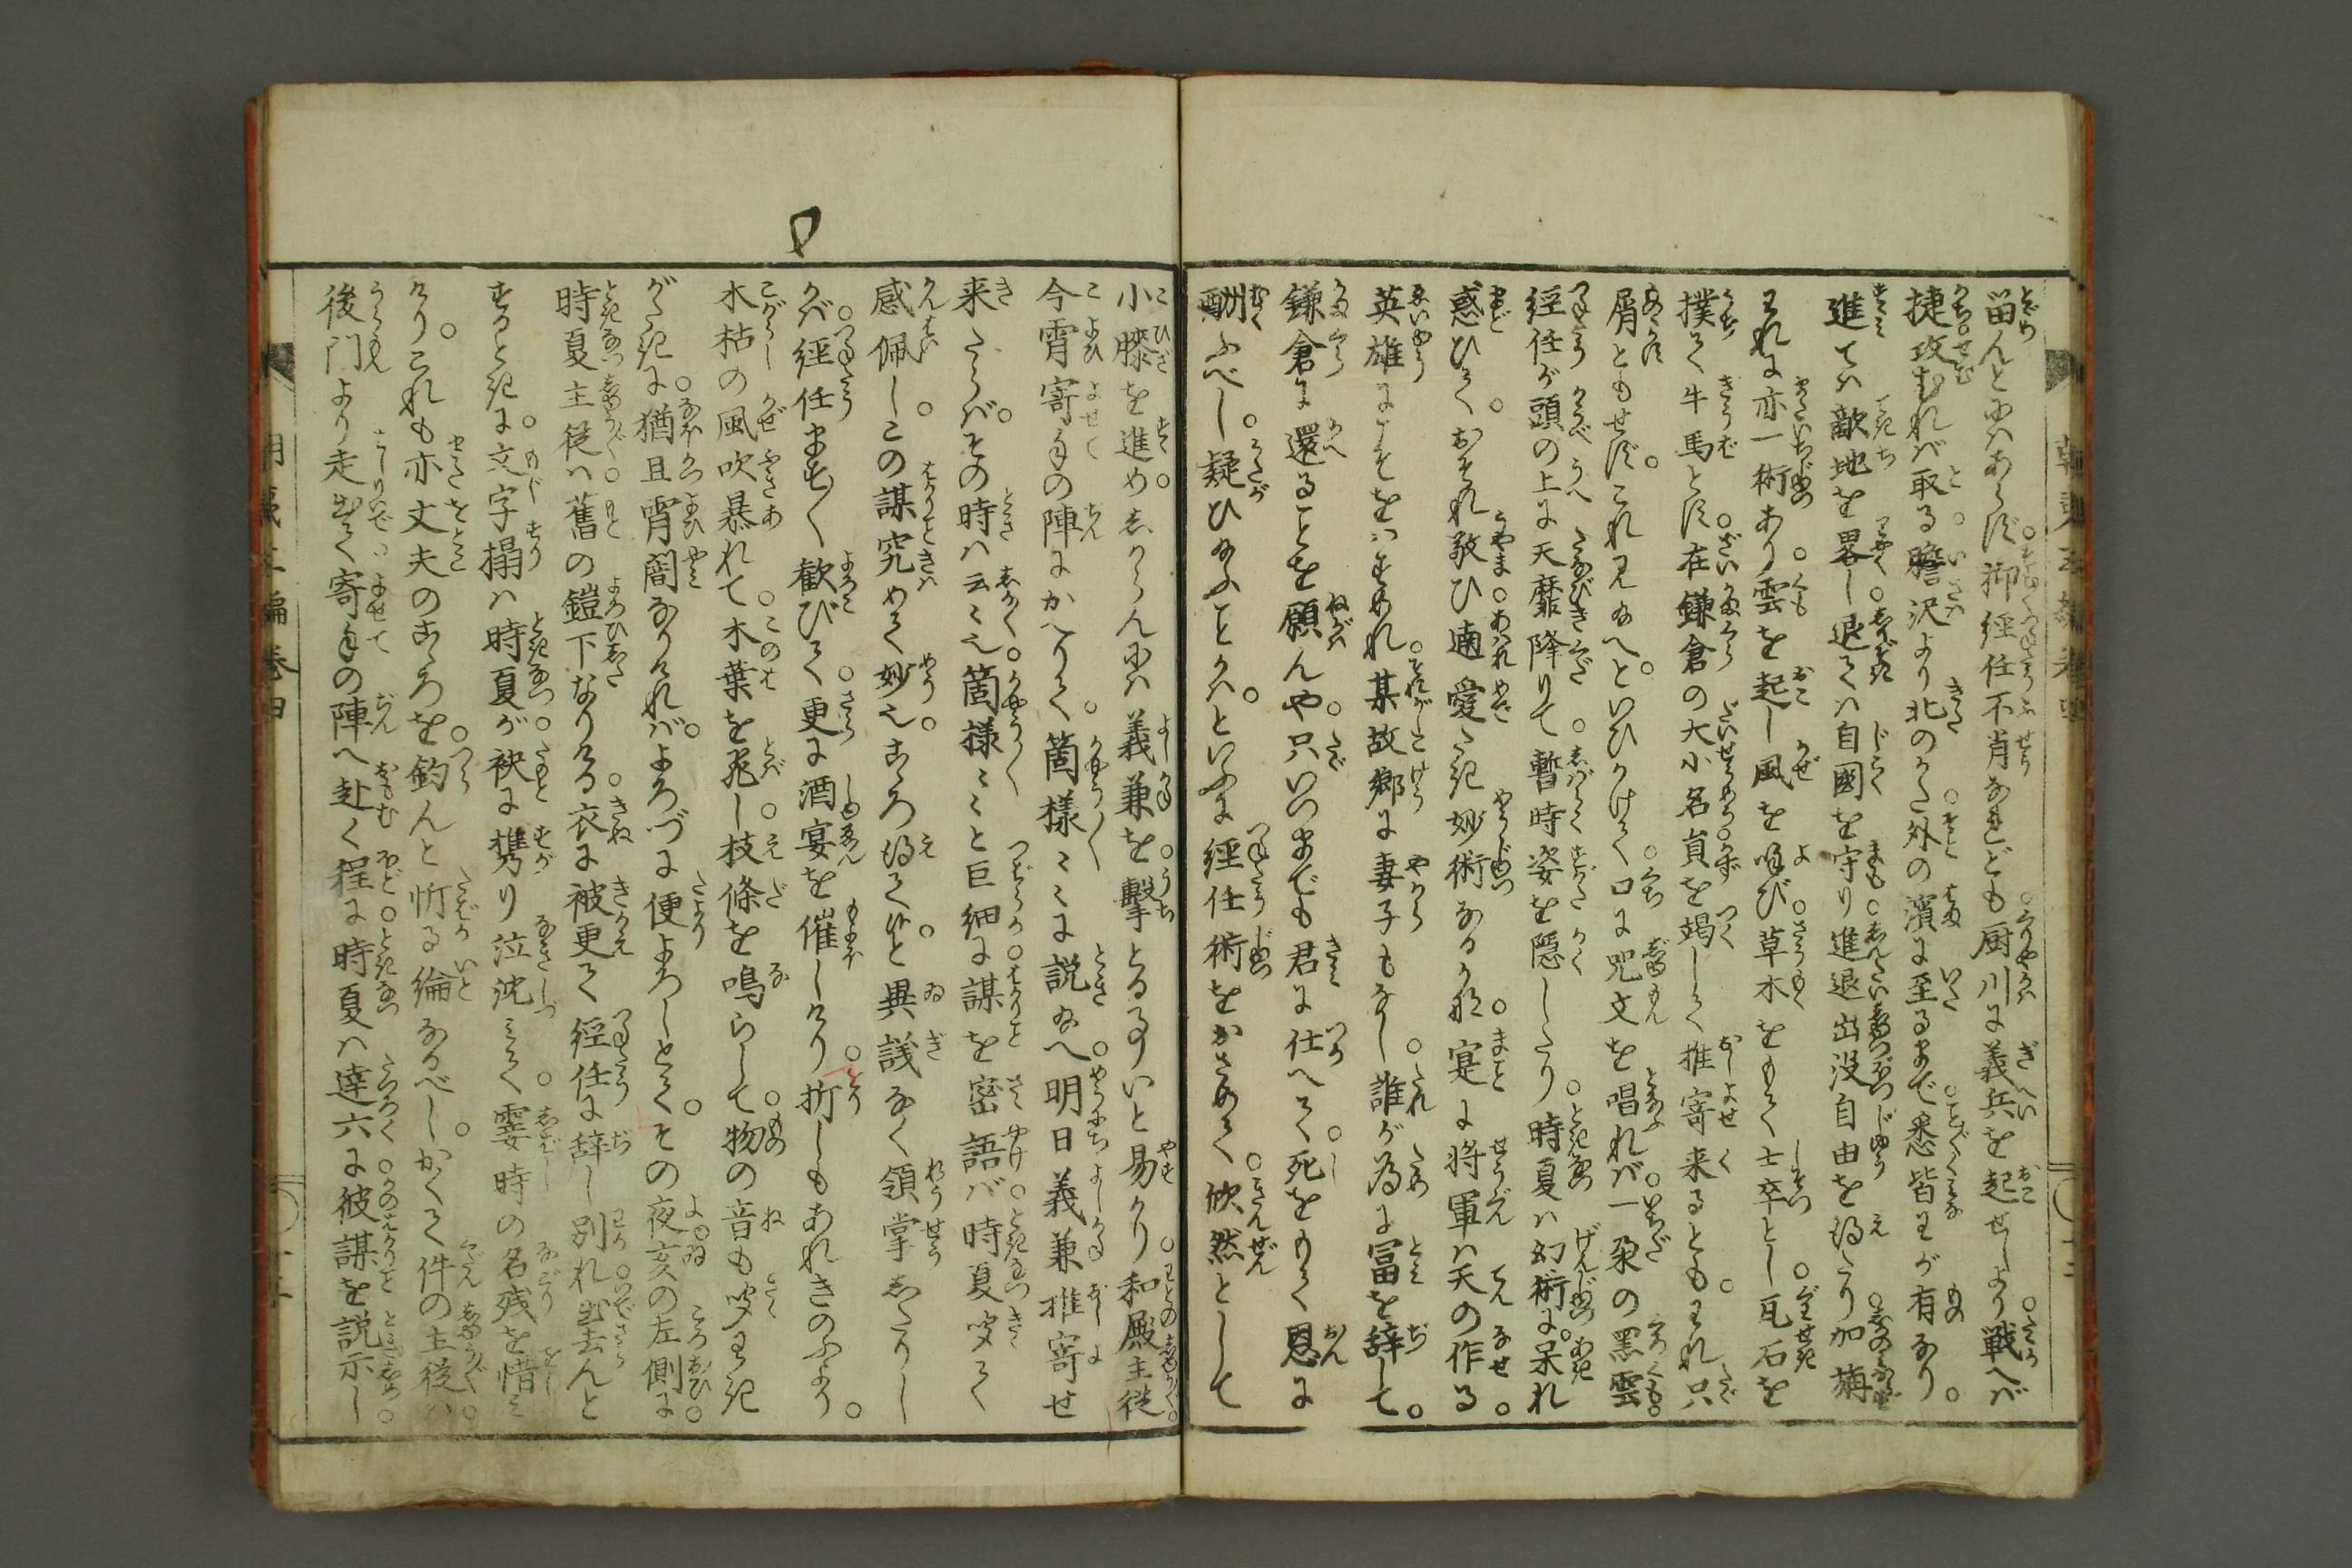 留んとにはあらず。抑経任不肖なれども。厨川に義兵を起せしより。戦へば
捷攻むれば取る。膽沢より北のかた。外の濱に至るまで。悉皆わが有なり。
進ては敵地を畧し。退ては自國を守り。進退出没自由を得たり。加旃
われに亦一術あり。雲を起し風を呼び。草木をもて士卒とし。瓦石を
撲て牛馬とす。在鎌倉の大小名。員を竭して推寄来るとも。われ只
屑ともせず。これ見給へ。といひかけて。口に咒文を唱れば。一朶の黒雲。
経任が頭の上に天靡降りて。暫時姿を隠したり。時夏は幻術に呆れ
惑ひて。おそれ敬ひ。適愛たき妙術なるかな。寔に将軍は天の作る。
英雄にこそをはすめれ。某故郷に妻子もなし。誰が為に冨を辞して。
鎌倉に還ることを願んや。只いつまでも君に仕へて。死をもて恩に
酬ふべし。疑ひ給ふことかは。といふに経任術をおさめて。欣然として
小膝を進め。しからんには義兼を。撃とる事いと易かり。和殿主従
今宵寄手の陣にかへりて。箇様々々に説給へ。明日義兼推寄せ
来たらば。その時は云云。箇様々々と巨細に。謀を密語ば。時夏聞て
感佩し。この謀究めて妙也。こゝろ得て候と。異議なく領掌したりし
かば。経任ます〳〵歓びて。更に酒宴を催しけり。折しもあれきのふより。
木枯の風吹暴れて。木葉を飛し。枝條を鳴らして。物の音も聞わき
がたきに。猶且宵闇なりければ。よろづに便よろしとて。その夜亥の左側に。
時夏主従は。舊の鎧下なりける。衣に被更て経任に辞し別れ。出去んと
するときに。文字摺は時夏が。袂に携り泣沈みて。霎時の名残を惜み
けり。これも亦丈夫のこゝろを。釣んと忻る綸なるべし。かくて件の主従は。
後門より走出て。寄手の陣へ赴く程に。時夏は達六に。彼謀を説示し。